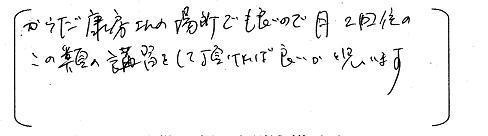 からだ康房さんの場所でも良いので月2回位の
この類の講習をして頂ければ良いが思います